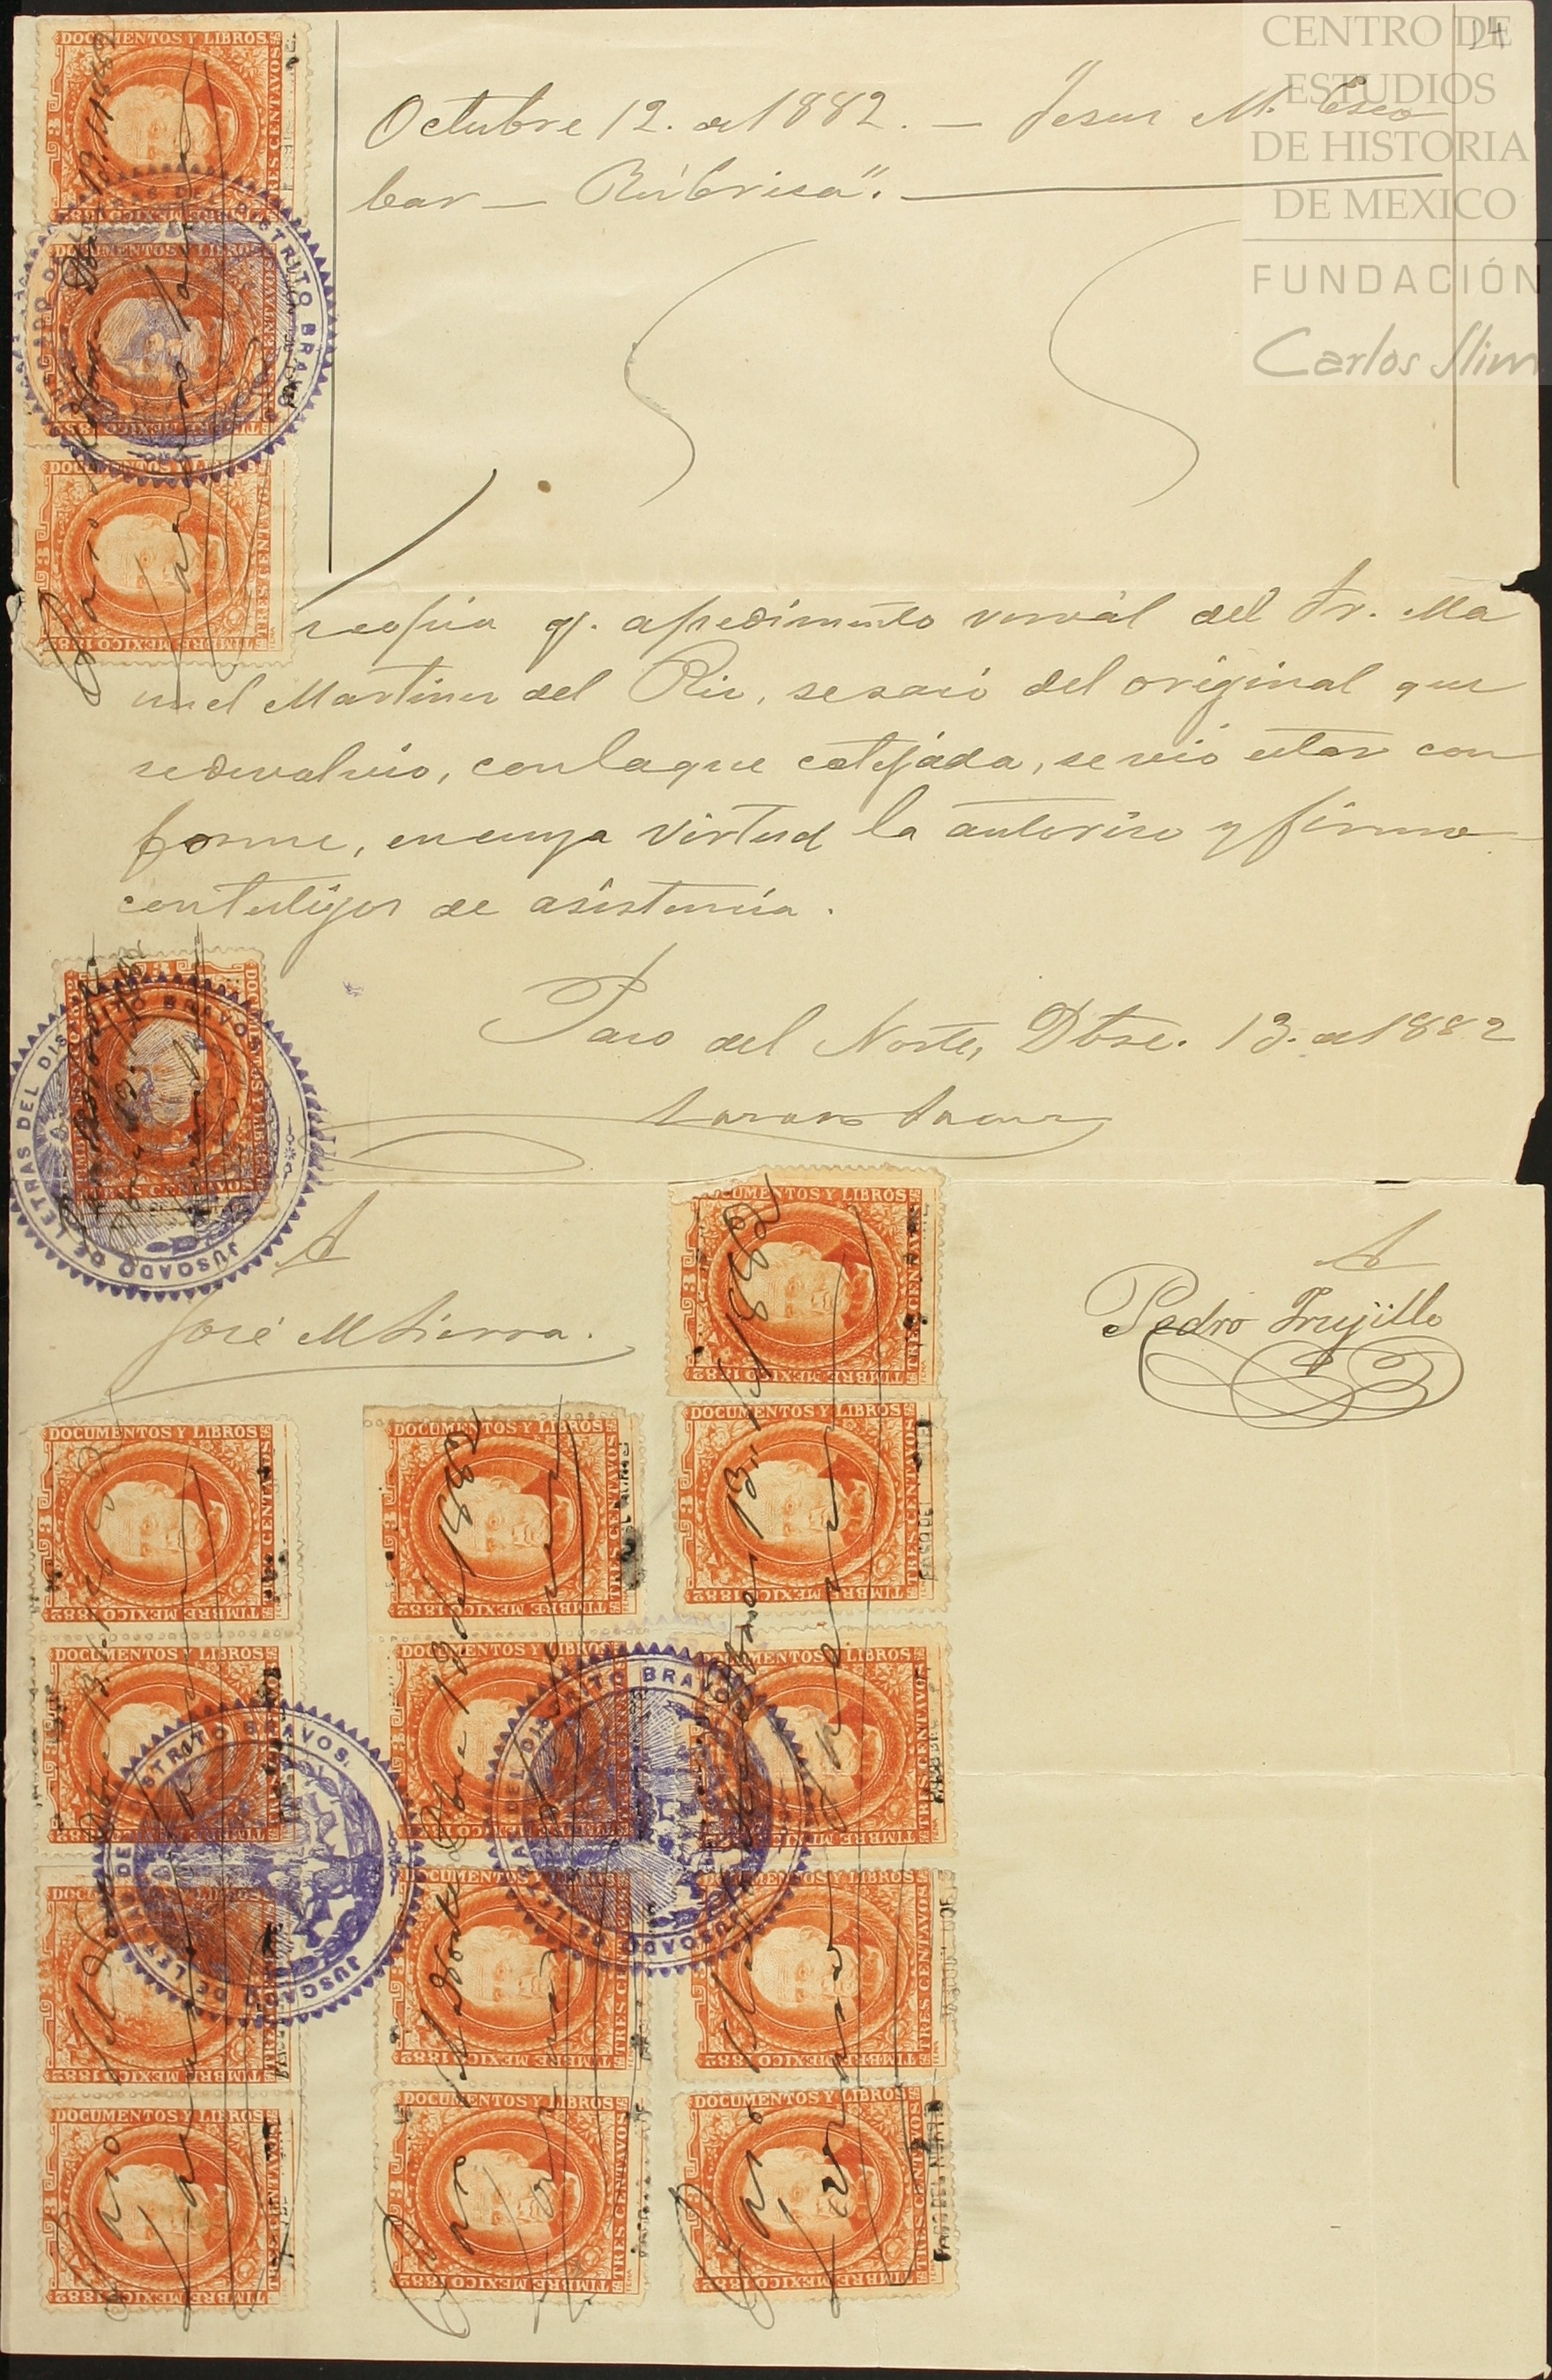 14
CENTRO DE
ESTUDIOS
DE HISTORIA
DE MEXICO
FUNDACIÓN
Carlos Slim
Octubre 12. de 1882. — Jesus M. Esco
bar — Rúbrica". —
copia q. apedimento verval del Sr. Ma
nuel Martinez del Rio, se sacó del original que
sedevolvio, conlaque cotejada, se vió estar con
forme, encuya virtud la autoriso y firmo
contestigos de asistencia.
Paso del Norte, Dbre. 13. de 1882
A
José M Sierra.
A
Pedro Trujillo
DOCUMENTOS Y LIBROS
TRES CENTAVOS
TIMBRE MEXICO 1882
JUSGADO DE LETRAS DEL DISTRITO BRAVOS
Paso del Norte Dbre 13 de 1882